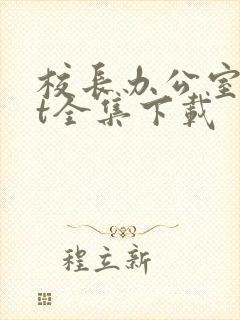 校长办公室
t全集下载
程立新